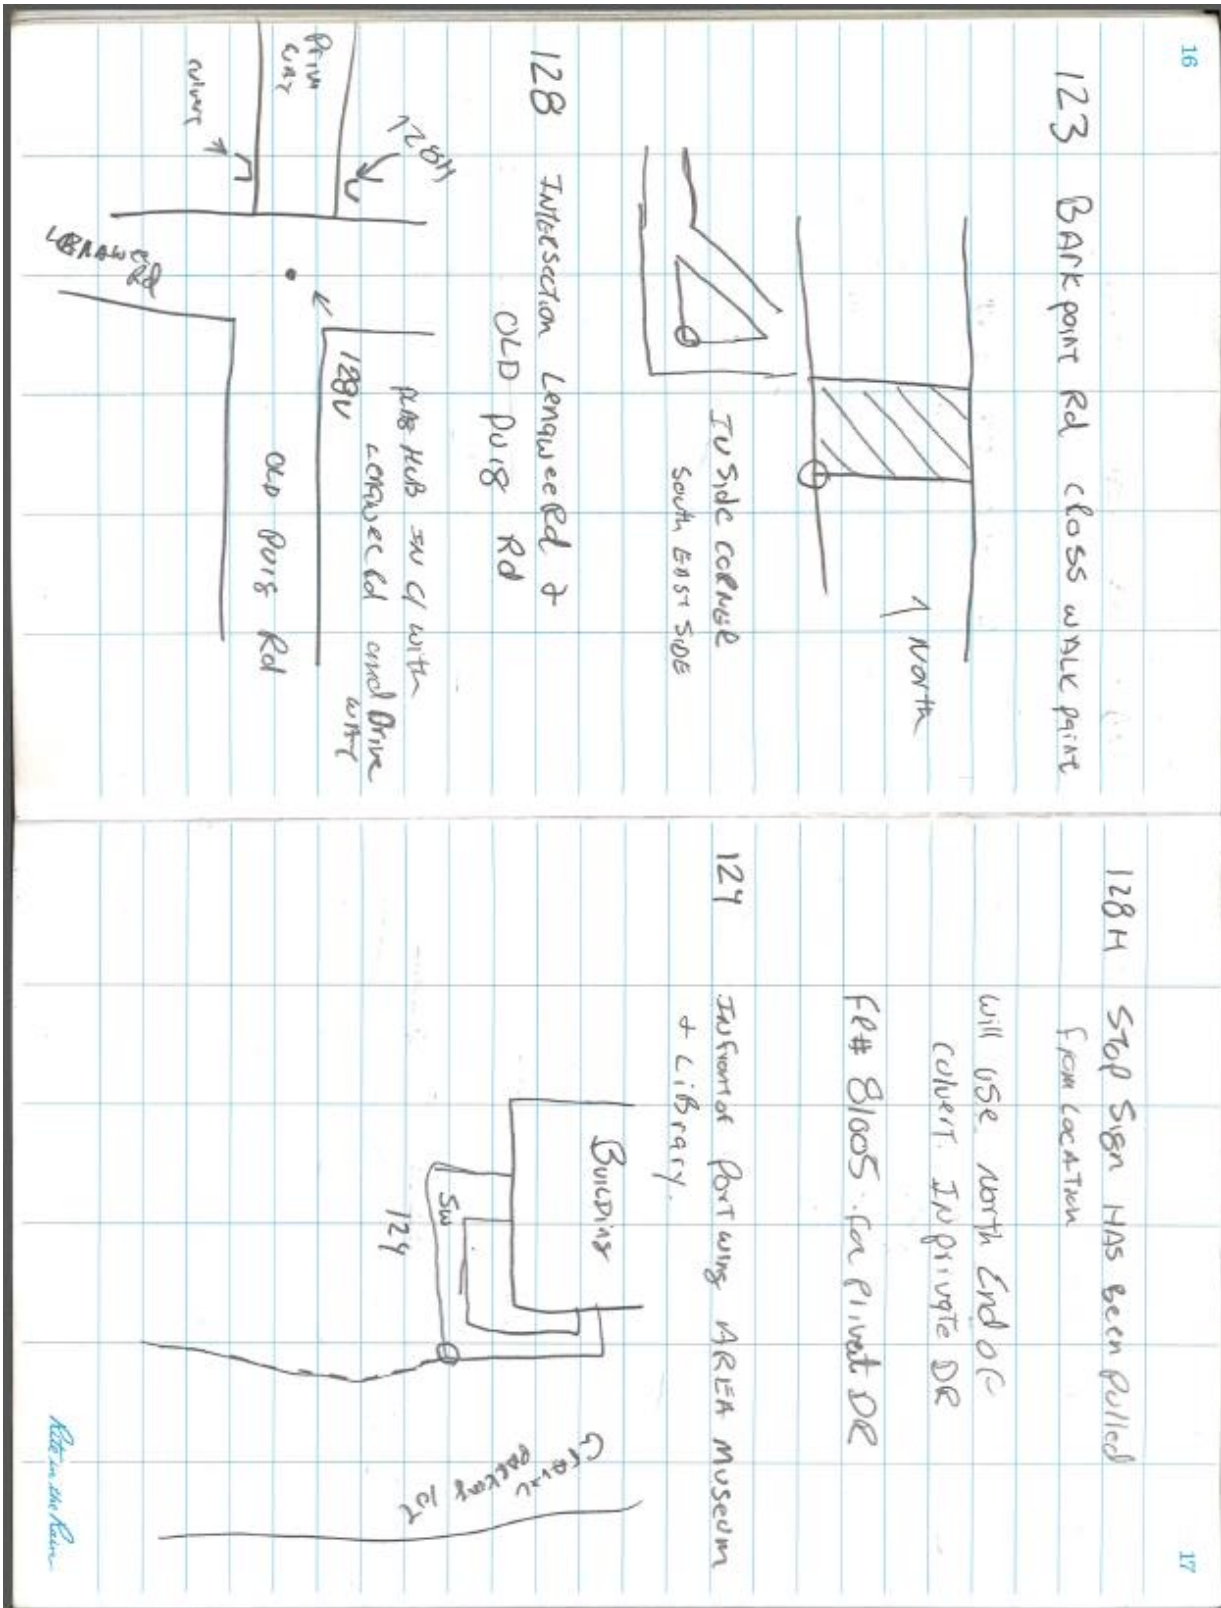 16
123 BArkpoint Rd CROSS WALK paint
↑ North
INSide CORNER
South EAST SIDE
128 INTERSection Lenawee Rd &
OLD PW18 Rd
128H
Priv
WAY
culvert
128V
PLAB HUB IN C/ with
Lenawee Rd and Drive
WAY
LENAWEE
Rd
OLD PW18 Rd
17
128H Stop Sign HAS Been Pulled
From LOCATION
Will USE North End OF
culvert IN private DR
FR# 81005 For Privat DR
124 INFront of Port wing AREA MUSEUM
+ LiBrary.
BuiLDing
SW
124
Gravel
parking lot
Rite in the Rain